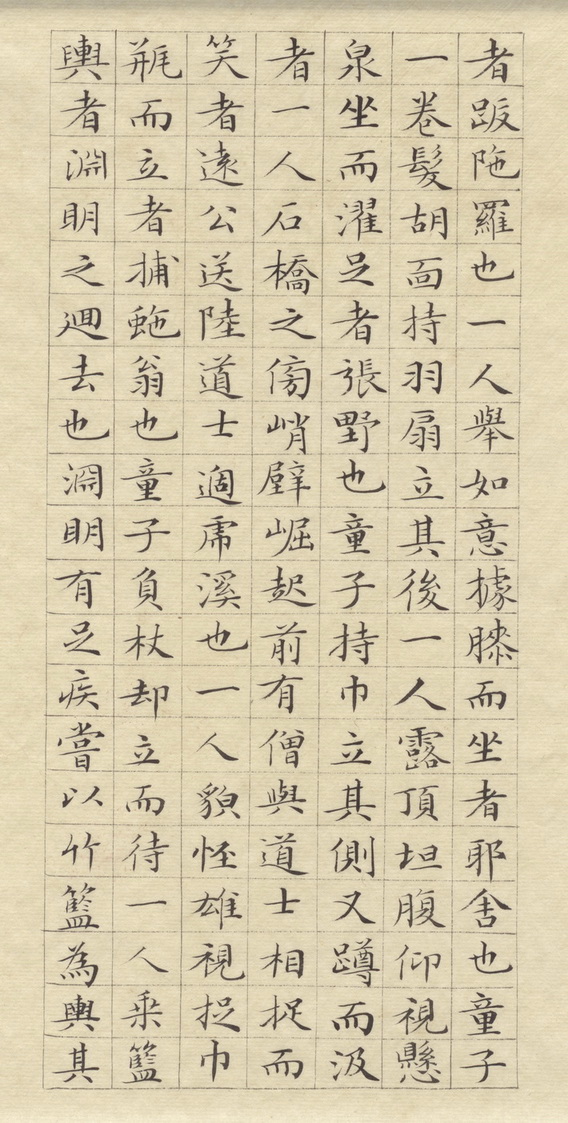 者跋陁羅也一人舉如意據膝而坐者耶舍也童子
一卷髮胡面持羽扇立其後一人露頂坦腹仰視懸
泉坐而濯足者張野也童子持巾立其側又蹲而汲
者一人石橋之傍峭壁崛起前有僧與道士相捉而
笑者遠公送陸道士過虎溪也一人貌怪雄視捉巾
瓶而立者捕虵翁也童子負杖却立而待一人乘籃
輿者淵明之廻去也淵明有足疾嘗以竹籃為輿其